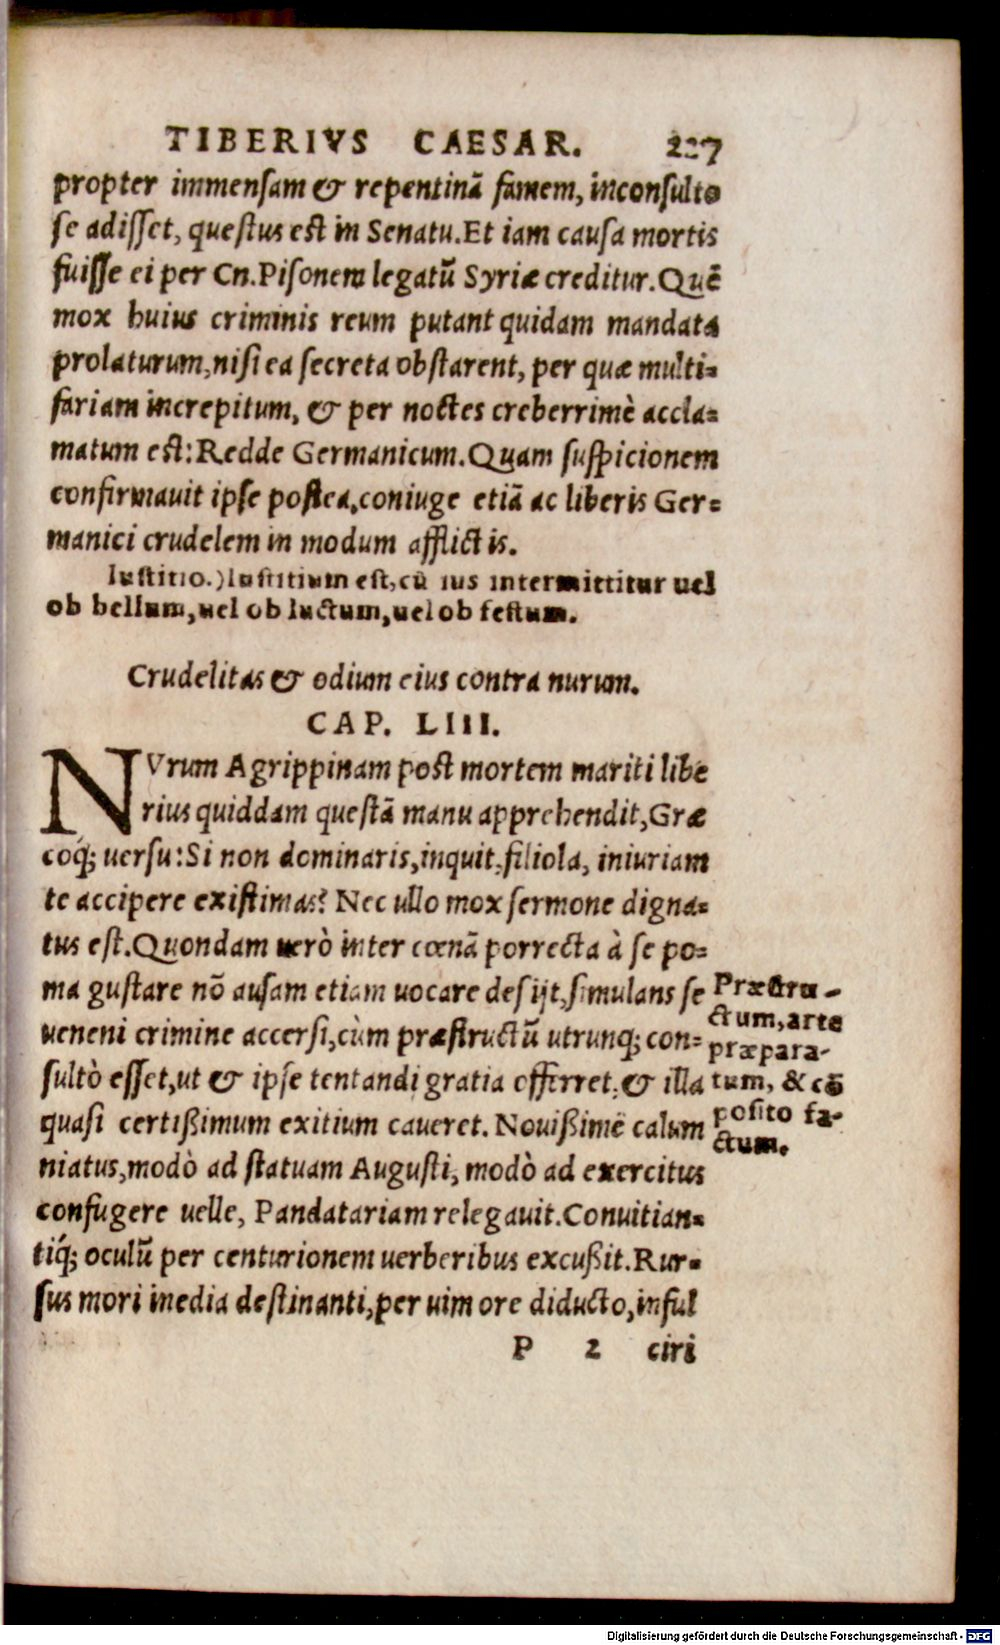 TIBERIVS CAESAR. 227
propter immensam & repentinā famem, inconsulto
se adisset, questus est in Senatu. Et iam causa mortis
fuisse ei per Cn. Pisonem legatū Syriæ creditur. Quē
mox huius criminis reum putant quidam mandata
prolaturum, nisi ea secreta obstarent, per quæ multi-
fariam increpitum, & per noctes creberrimè accla-
matum est: Redde Germanicum. Quam suspicionem
confirmauit ipse postea, coniuge etiā ac liberis Ger-
manici crudelem in modum afflictis.
Iustitio.) Iustitium est, cū ius intermittitur uel
ob bellum, uel ob luctum, uel ob festum.
Crudelitas & odium eius contra nurum.
CAP. LIII.
NVrum Agrippinam post mortem mariti libe
rius quiddam questā manu apprehendit, Græ
coq́; uersu: Si non dominaris, inquit, filiola, iniuriam
te accipere existimas? Nec ullo mox sermone digna-
tus est. Quondam uerò inter cœnā porrecta à se po-
ma gustare nō ausam etiam uocare desijt, simulans se
ueneni crimine accersi, cùm præstructū utrunq; con-
sultò esset, ut & ipse tentandi gratia offerret, & illa
quasi certißimum exitium caueret. Nouißimè calum
niatus, modò ad statuam Augusti, modò ad exercitus
confugere uelle, Pandatariam relegauit. Conuitian-
tiq́; oculū per centurionem uerberibus excußit. Rur-
sus mori inedia destinanti, per uim ore diducto, inful
P 2 ciri
Præstru-
ctum, arte
præpara-
tum, & cō
posito fa-
ctum.
Digitalisierung gefördert durch die Deutsche Forschungsgemeinschaft - DFG